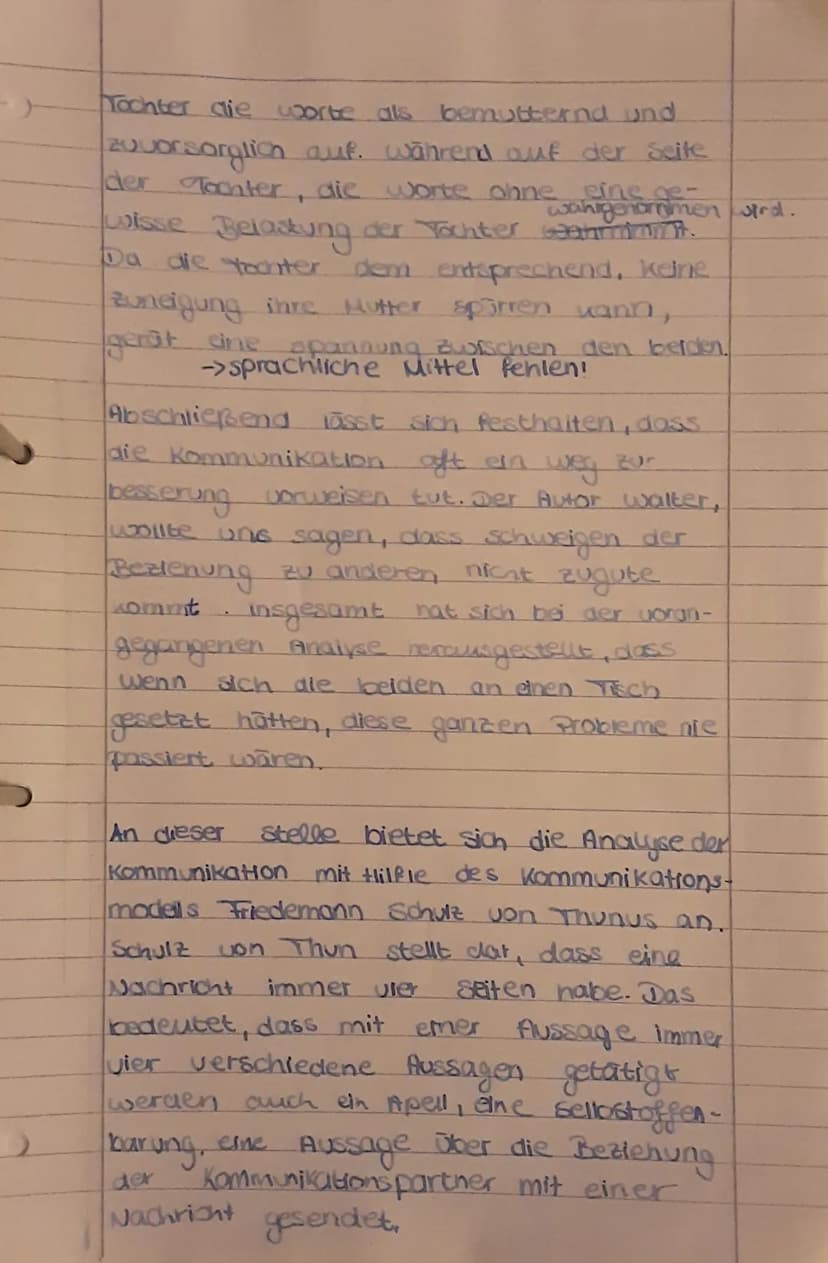 Tochter die worte als bemutternd und
zuvorsorglich auf. Während auf der Seite
der Tochter, die worte ohne eine ge-
wahrgenommen wird.
wisse Belastung der Tochter
Da die tochter dem entsprechend, keine
Zuneigung ihre Mutter spürren kann,
gerät eine spannung zwischen den beiden.
->sprachliche Mittel fehlen!
Abschließend lässt sich festhalten, dass
die Kommunikation oft ein weg zur
besserung vorweisen tut. Der Autor Walter,
wollte uns sagen, dass schweigen der
Beziehung zu anderen nicht zugute
kommt. insgesamt hat sich bei der voran-
gegangenen Analyse herausgestellt, dass
wenn sich die beiden an einen Tisch
gesetzt hätten, diese ganzen Probleme nie
passiert wären.
An dieser stelle bietet sich die Analyse der
Kommunikation mit Hilfie des Kommunikations-
modells Friedemann Schulz von Thunus an.
Schulz von Thun stellt dar, dass eine
Nachricht immer vier Seiten habe. Das
bedeutet, dass mit einer Aussage immer
vier verschiedene Aussagen getätigt
werden auch ein Apell, eine Selbstoffen-
barung, eine Aussage über die Beziehung
der Kommunikationspartner mit einer
Nachricht gesendet.